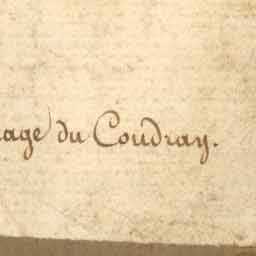 age du Coudray.